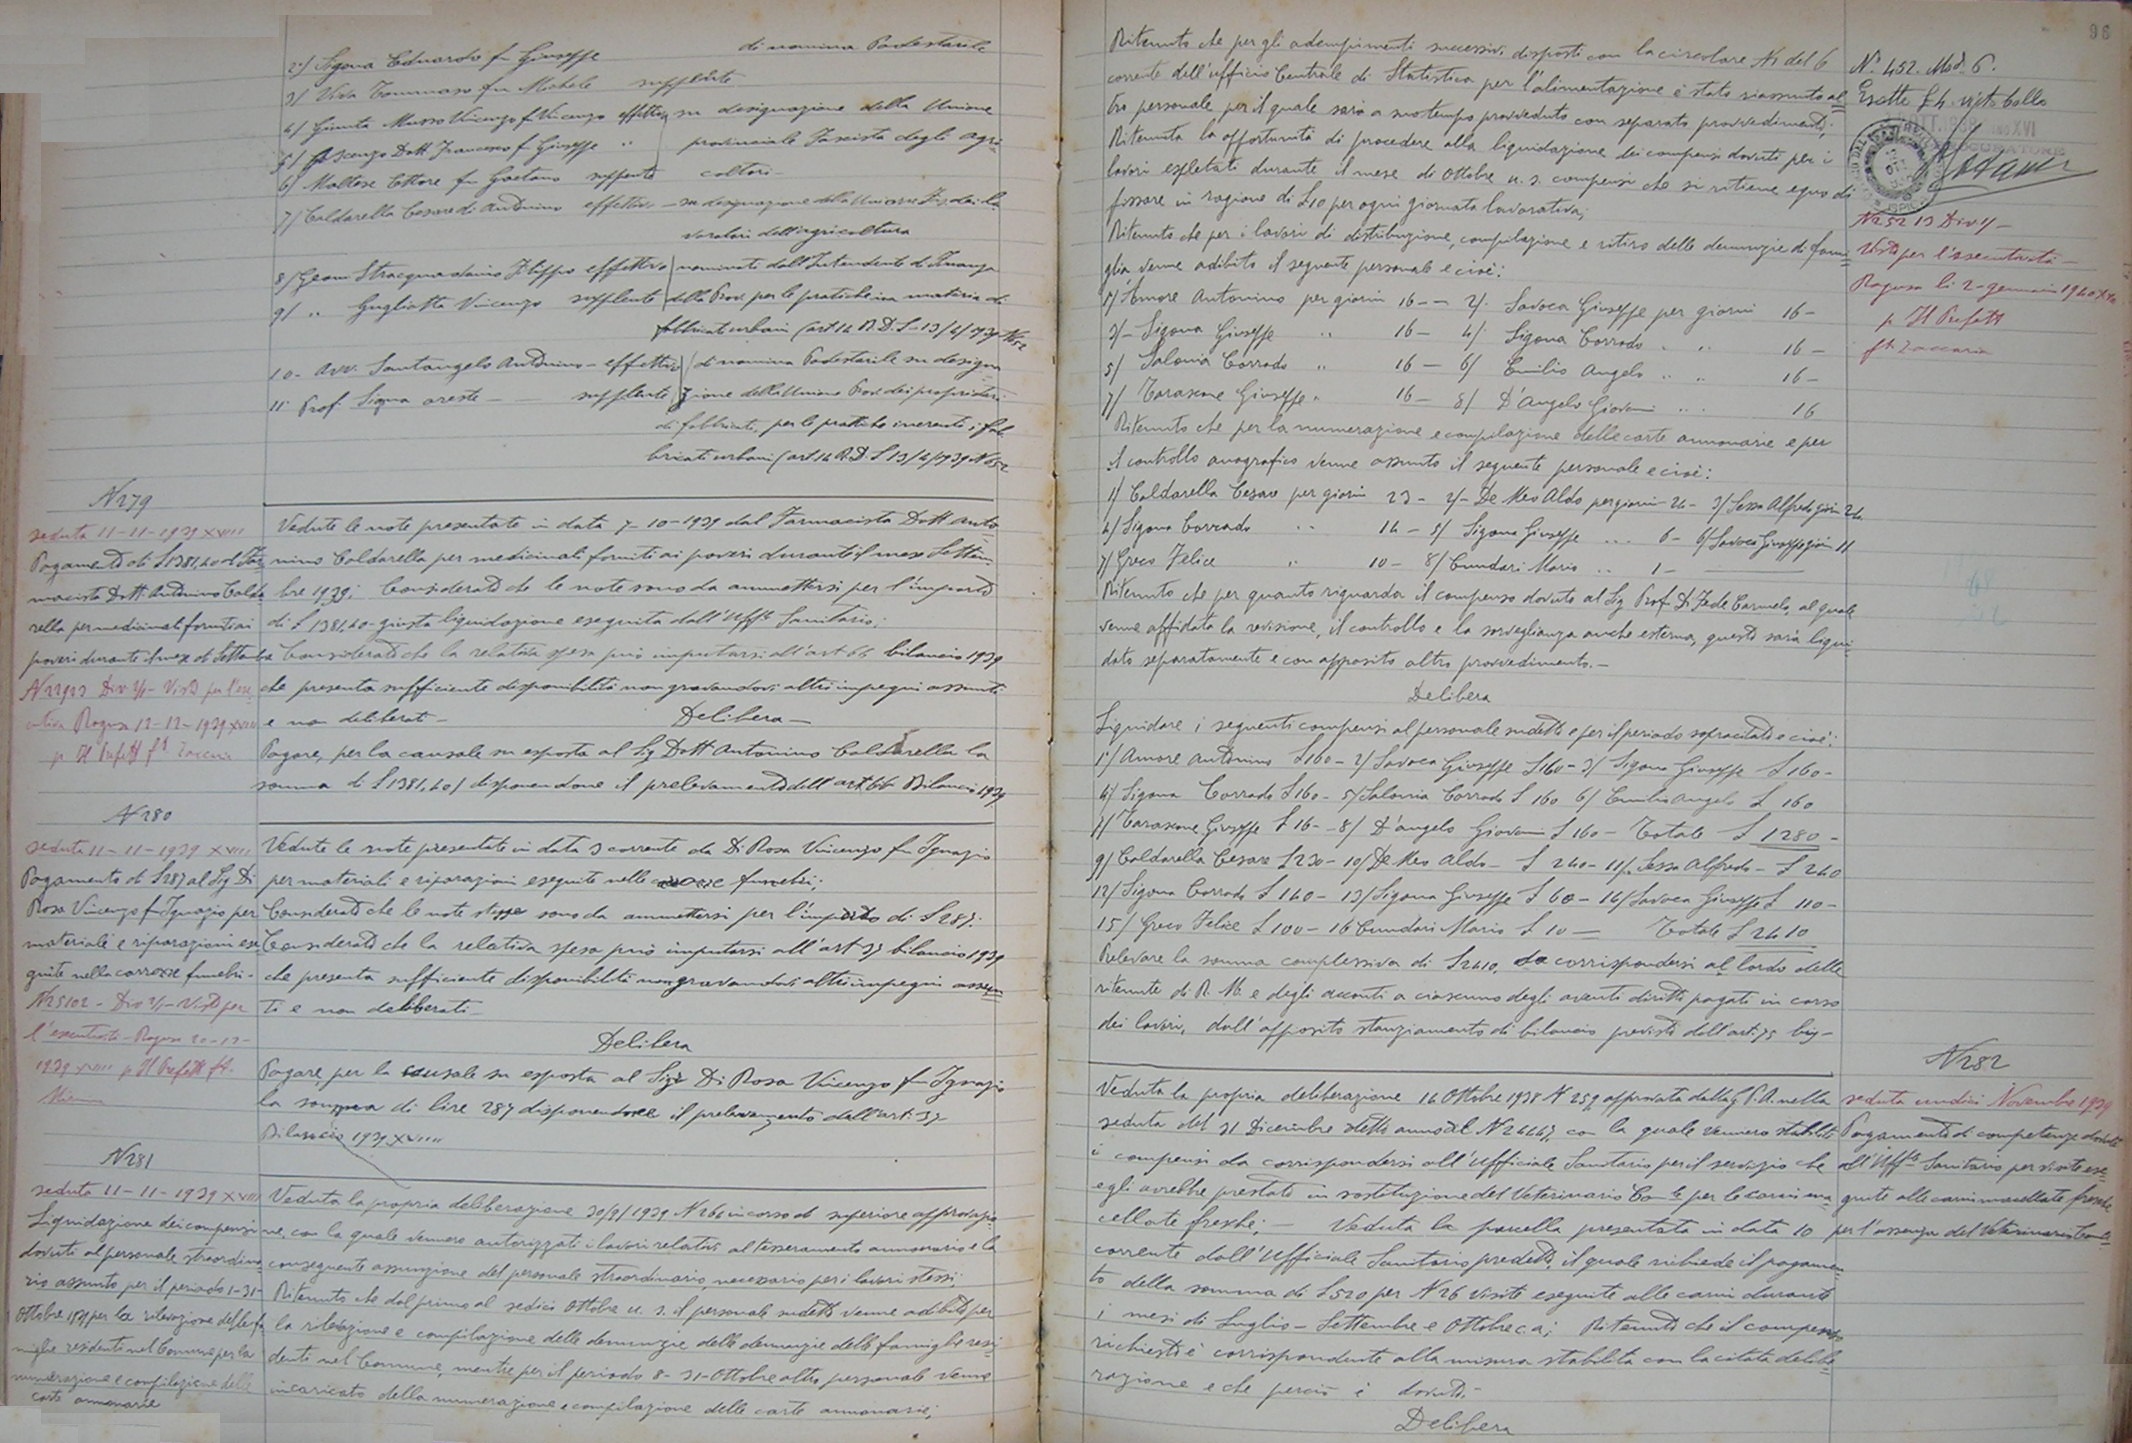 di nomina Podestarile
2°/ Sigona Eduardo fu Giuseppe
3/ Vida Tommaso fu Michele supplente
4/ Giunta Musso Vincenzo f Vincenzo effettivo su designazione della Unione
5/ Ascenzo Dott Francesco f Giuseppe " provinciale Fascista degli agri
6/ Maltese Ettore fu Gaetano supplente coltori -
7/ Caldarella Cesare di Antonino effettivo - su designazione della Unione dei la
voratori dell'agricoltura
8/ Geom Stracquadaino Filippo effettivo nominati dall'Intendente di Finanza
9/ " Gugliotta Vincenzo supplente della Prov. per le pratiche in materia di
fabbricati urbani (art 14 R.D.L - 13/4/1939 N 652
10 - Avv. Santangelo Antonino - effettivo di nomina Podestarile su designa
11 Prof Sigona Oreste - supplente zione della Unione Prov. dei proprietari
di fabbricati, per le pratiche inerenti i fab
bricati urbani (art 14 R.D.L 13/4/1939 N 652
N 279
seduta 11-11-1939 XVIII
Pagamento di £ 1381,40 al Far
macista Dott. Antonino Calda
rella per medicinali forniti ai
poveri durante il mese di Settembre
Div 2/- Visto per l'ese
cutività Ragusa 12-12-1939 XVIII
p Il Prefetto ft Zaccaria
Vedute le note presentate in data 7-10-1939 dal Farmacista Dott Anto
nino Caldarella per medicinali forniti ai poveri durante il mese Settem
bre 1939; Considerato che le note sono da ammettersi per l'importo
di £ 1381,40 - giusta liquidazione eseguita dall'Uff. Sanitario;
Considerato che la relativa spesa può imputarsi all'art 66 bilancio 1939
che presenta sufficiente disponibilità non gravandovi altri impegni assunti
e non deliberati -
Delibera -
Pagare, per la causale su esposta al Sig Dott Antonino Caldarella la
somma di £ 1381,40/ disponendone il prelevamento dall'art. 66 Bilancio 1939
N 280
seduta 11-11-1939 XVIII
Pagamento di £ 287 al Sig Di
Rosa Vincenzo fu Ignazio per
materiale e riparazioni ese
guite nelle carrozze funebri -
N 25102 - Div 2/- Visto per
l'esecutività - Ragusa 20-12-
1939 XVIII p Il Prefetto ft.
Vedute le note presentate in data 3 corrente da Di Rosa Vincenzo fu Ignazio
per materiali e riparazioni eseguite nelle carrozze funebri;
Considerato che le note stesse sono da ammettersi per l'importo di £ 287:
Considerato che la relativa spesa può imputarsi all'art 37 bilancio 1939
che presenta sufficiente disponibilità non gravandovi altri impegni assun
ti e non deliberati -
Delibera
Pagare, per la causale su esposta al Sig Di Rosa Vincenzo fu Ignazio
la somma di lire 287 disponendone il prelevamento dall'art. 37
Bilancio 1939 XVIII
N 281
seduta 11-11-1939 XVIII
Liquidazione dei compensi
dovuti al personale straordina
rio assunto per il periodo 1-31-
Ottobre 1939 per la rilevazione delle fa
miglie residenti nel Comune per la
numerazione e compilazione delle
carte annonarie
Veduta la propria deliberazione 30/9/1939 N 264 in corso di superiore approvazio
ne, con la quale vennero autorizzati i lavori relativi al tesseramento annonario e la
conseguente assunzione del personale straordinario, necessario per i lavori stessi;
Ritenuto che dal primo al sedici Ottobre u. s. il personale sudetto venne adibito per
la rilevazione e compilazione delle denunzie delle denunzie delle famiglie resi
denti nel Comune, mentre per il periodo 8-31-Ottobre altro personale venne
incaricato della numerazione e compilazione delle carte annonarie;
96
Ritenuto che per gli adempimenti successivi disposti con la circolare N 1 del 6
corrente dell'ufficio Centrale di Statistica per l'alimentazione è stato riassunto al
tro personale per il quale sarà a suo tempo provveduto con separato provvedimento;
Ritenuta la opportunità di procedere alla liquidazione dei compensi dovuti per i
lavori espletati durante il mese di Ottobre u. s. compensi che si ritiene equo di
fissare in ragione di £ 10 per ogni giornata lavorativa;
Ritenuto che per i lavori di distribuzione, compilazione e ritiro delle denunzie di fami
glia venne adibito il seguente personale e cioè:
1°/ Amore Antonino per giorni 16 - - 2/. Savoca Giuseppe per giorni 16 -
3/- Sigona Giuseppe " 16 - 4/. Sigona Corrado " " 16 -
5/ Salonia Corrado " 16 - 6/ Emilio Angelo " " 16 -
7/ Tarascone Giuseppe " 16 - 8/ D'Angelo Giovanni " " 16
Ritenuto che per la numerazione e compilazione delle carte annonarie e per
il controllo anagrafico venne assunto il seguente personale e cioè:
1/ Caldarella Cesare per giorni 23 - 2/- De Meo Aldo per giorni 24 - 3/ Sessa Alfredo giorni 24
4/ Sigona Corrado " 14 - 5/ Sigona Giuseppe " 6 - 6/ Savoca Giuseppe giorni 11
7/ Greco Felice " 10 - 8/ Cundari Mario " 1 -
Ritenuto che per quanto riguarda il compenso dovuto al Sig Prof Di Fede Carmelo, al quale
venne affidata la revisione, il controllo e la sorveglianza anche esterna, questo sarà liqui
dato separatamente e con apposito altro provvedimento. -
Delibera
Liquidare i seguenti compensi al personale sudetto e per il periodo sopracitato e cioè:
1°/ Amore Antonino £ 160 - 2/ Savoca Giuseppe £ 160 - 3/ Sigona Giuseppe £ 160 -
4/ Sigona Corrado £ 160 - 5/ Salonia Corrado £ 160 6/ Emilio Angelo £ 160
7/ Tarascone Giuseppe £ 16 - - 8/ D'angelo Giovanni £ 160 - Totale £ 1280 -
9/ Caldarella Cesare £ 230 - 10/ De Meo Aldo - £ 240 - 11/. Sessa Alfredo - £ 240
12/ Sigona Corrado £ 140 - 13/ Sigona Giuseppe £ 60 - 14/ Savoca Giuseppe £ 110 -
15/ Greco Felice £ 100 - 16 Cundari Mario £ 10 = Totale £ 2410
Prelevare la somma complessiva di £ 2410, da corrispondersi al lordo delle
ritenute di R. M. e degli acconti a ciascuno degli aventi diritto pagati in corso
dei lavori, dall'apposito stanziamento di bilancio previsto dall'art. 75
N° 452. Mod. 6.
Esatte £ 4. visto bollo
N 252 13 Div 2/-
Visto per l'esecutività -
Ragusa li 2 - gennaio 1940 XVIII
p Il Prefetto
ft Zaccaria
N 282
seduta undici Novembre 1939
Pagamento di competenze dovute
all'Uff. Sanitario per visite ese
guite alle carni macellate fresche
per l'assenza del Veterinario Comle
Veduta la propria deliberazione 14 Ottobre 1938 N 259 approvata dalla G.P.A. nella
seduta del 31 Dicembre detto anno al N 24447, con la quale vennero stabiliti
i compensi da corrispondersi all'Ufficiale Sanitario per il servizio che
egli avrebbe prestato in sostituzione del Veterinario Comle per le carni ma
cellate fresche; - Veduta la parcella presentata in data 10
corrente dall'Ufficiale Sanitario predetto, il quale richiede il pagamen
to della somma di £ 520 per N 26 visite eseguite alle carni durante
i mesi di Luglio - Settembre e Ottobre c.a; Ritenuto che il compenso
richiesto è corrispondente alla misura stabilita con la citata delibe
razione e che perciò è dovuto -
Delibera